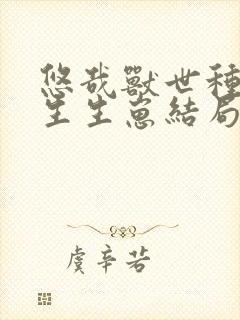 悠哉獸世種
生生崽結局
虞辛苦